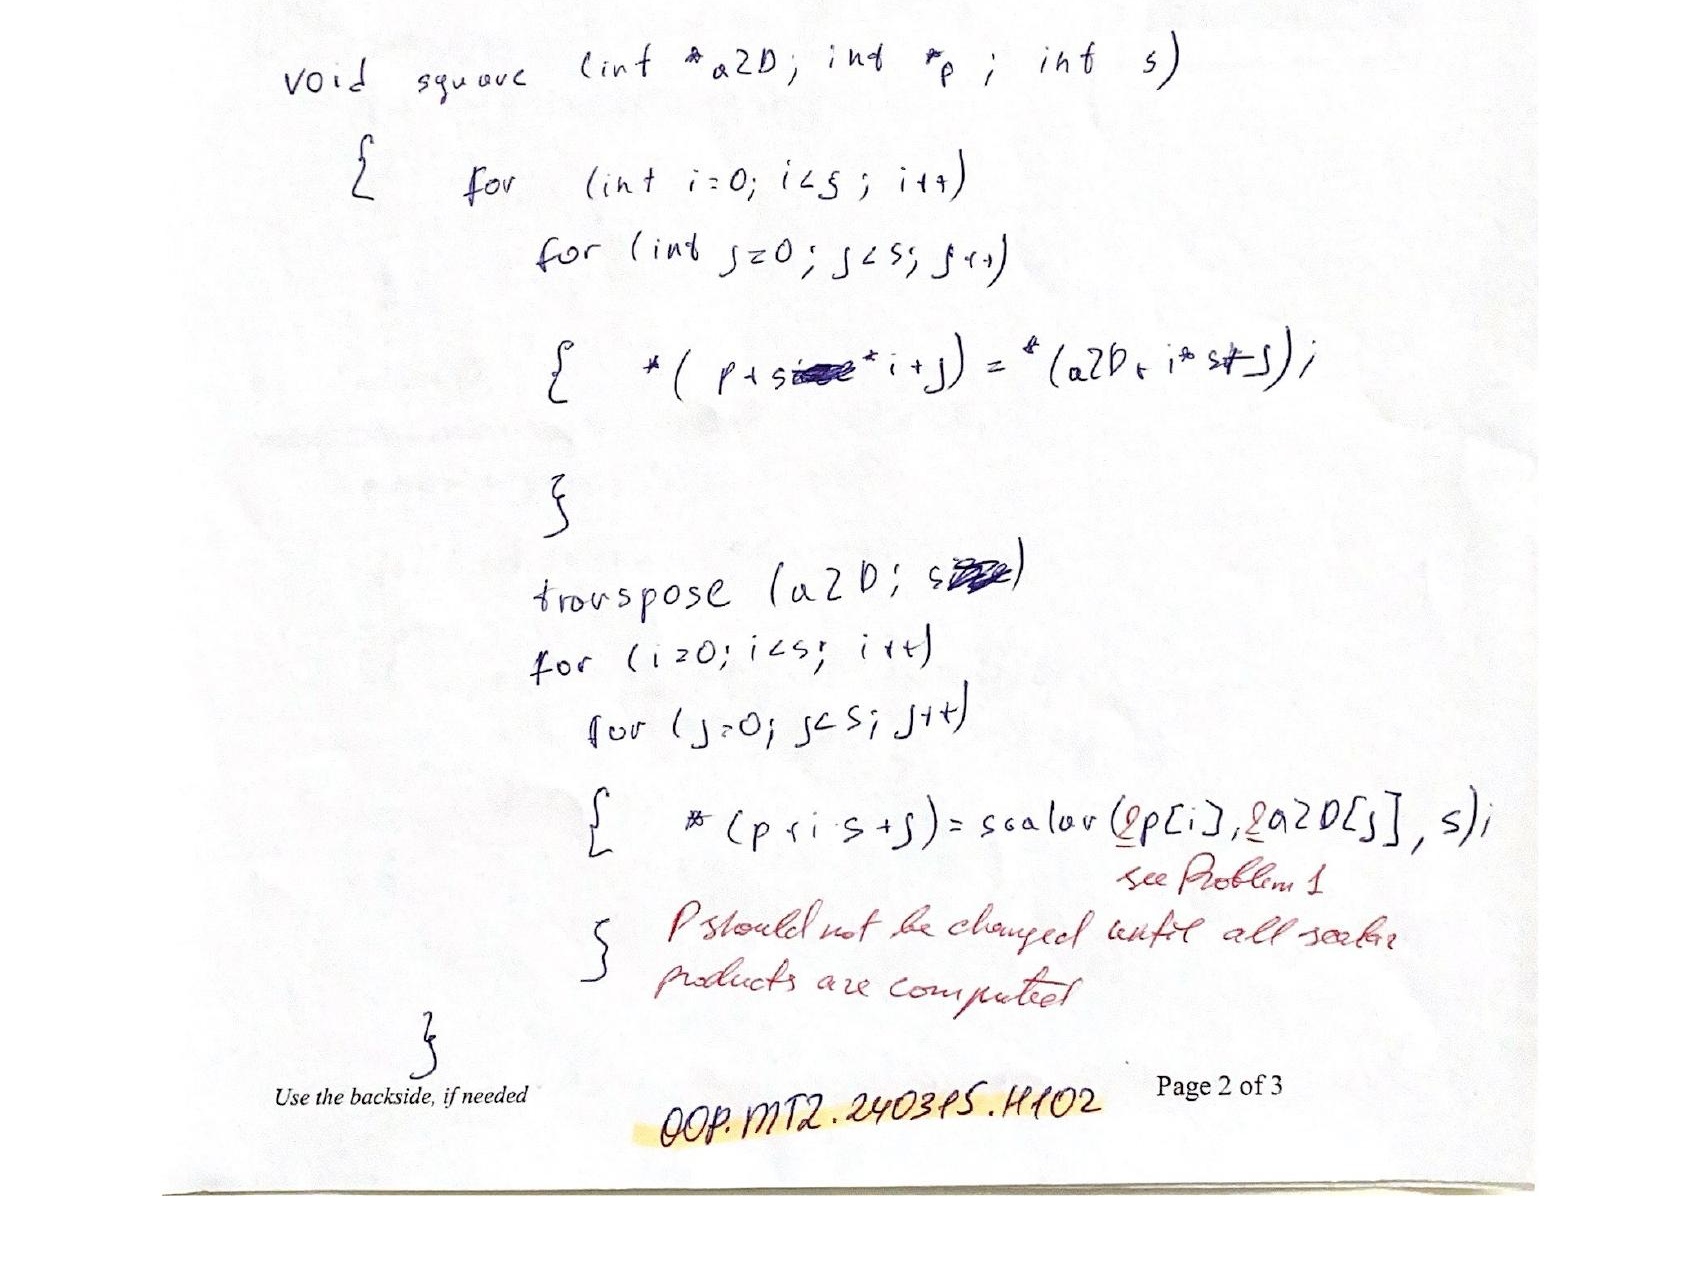 void square (int *a2D; int *p; int s)
{ for (int i=0; i<s; i++)
for (int j=0; j<s; j++)
{ *(p+s*i+j) = *(a2D+i*s+j);
}
transpose (a2D; s)
for (i=0; i<s; i++)
for (j=0; j<s; j++)
{ *(p+i·s+j)=scalar(&p[i],&a2D[j],s);
see Problem 1
} P should not be changed until all scalar
products are computed
}
Use the backside, if needed
OOP.MT2.240315.H102
Page 2 of 3